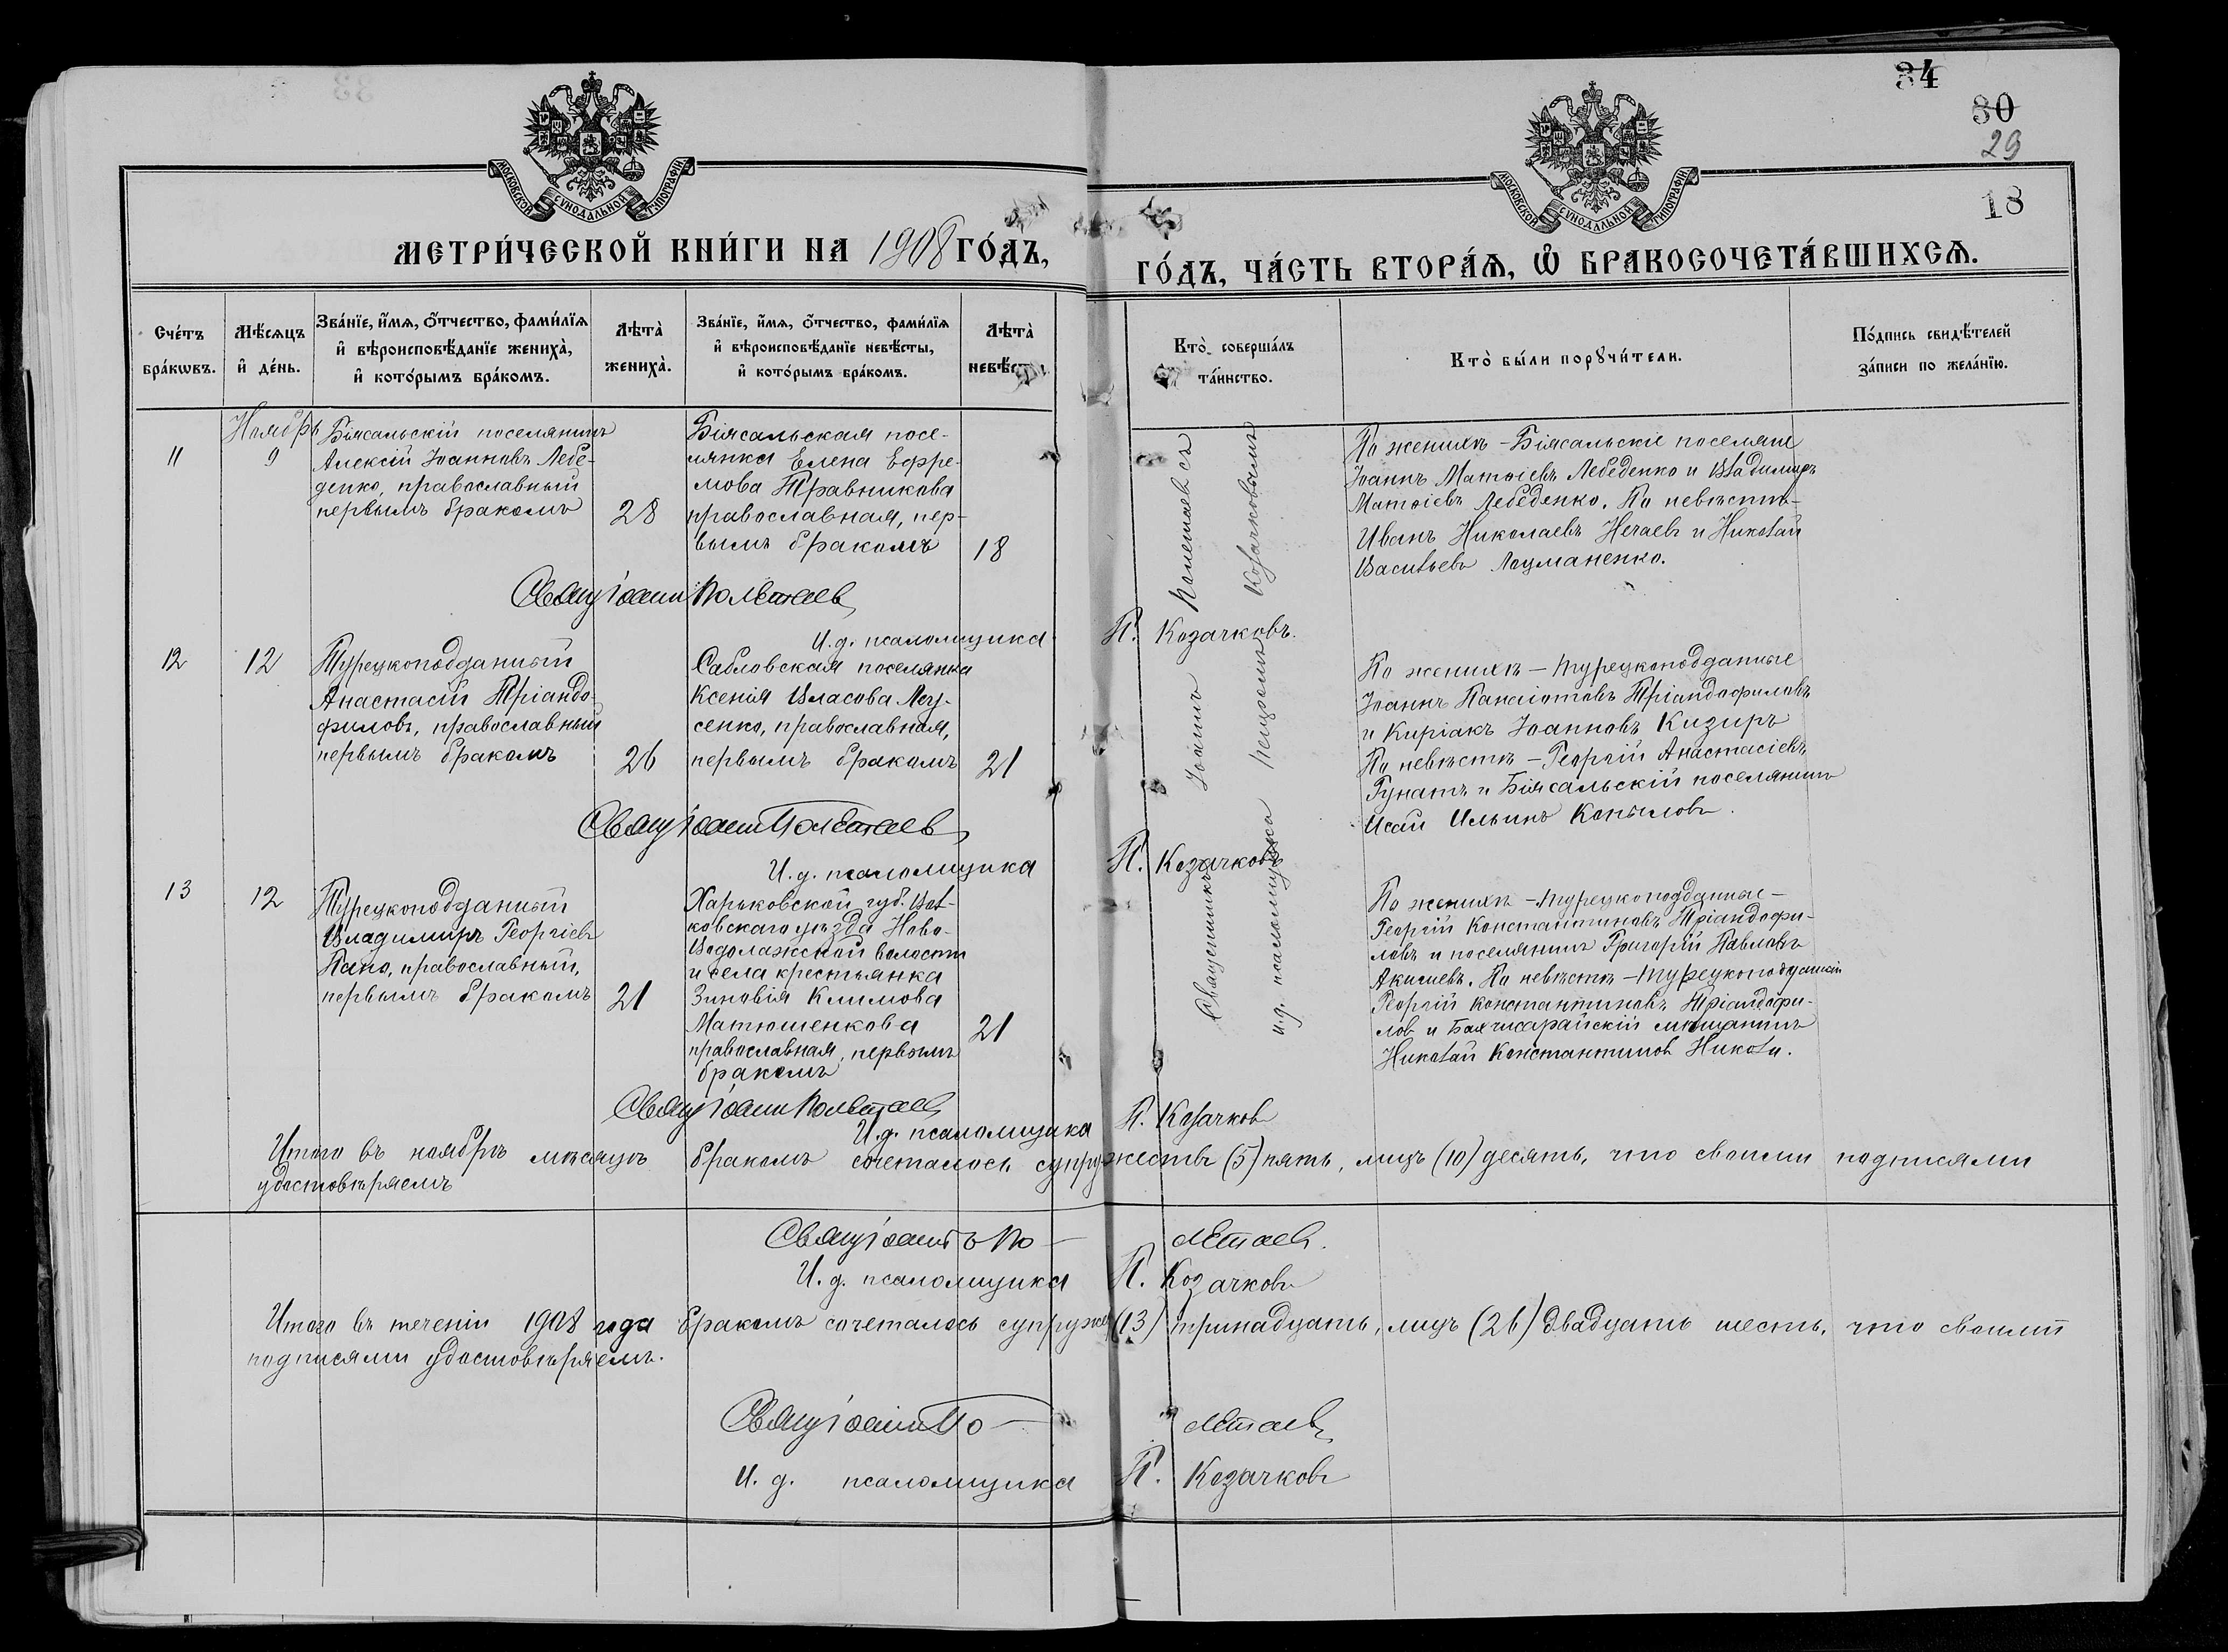 34
30
29
18
МОСКОВСКОЙ СУНОДАЛЬНОЙ ТИПОГРАФІИ
МОСКОВСКОЙ СУНОДАЛЬНОЙ ТИПОГРАФІИ
МЕТРИ́ЧЕСКОЙ КНИ́ГИ НА 1908 ГО́ДЪ,
ГО́ДЪ, ЧА́СТЬ ВТОРА́Ѧ, Ѽ БРАКОСОЧЕТА́ВШИХСѦ.
Сче́тъ бра́кѡвъ.
Мѣ́сѧцъ и҆ де́нь.
Зва́нїе, и҆́мѧ, ѻ҆́тчество, фами́лїѧ и҆ вѣроисповѣ́данїе жениха̀, и҆ кото́рымъ бра́комъ.
Лѣта̀ жениха̀.
Зва́нїе, и҆́мѧ, ѻ҆́тчество, фами́лїѧ и҆ вѣроисповѣ́данїе невѣ́сты, и҆ кото́рымъ бра́комъ.
Лѣта̀
Кто̀ соверша́лъ та́инство.
Кто̀ бы́ли порꙋчи́тели.
По́дпись свидѣ́телей за́писи по жела́нїю.
11
Ноябрь
9
Біясальскій поселянинъ
Алексій Іоанновъ Лебе-
денко, православный
первымъ бракомъ
28
Біясальская посе-
лянка Елена Ефре-
мова Травникова
православная, пер-
вымъ бракомъ
18
Священникъ Іоаннъ Полетаевъ съ
и.д. псаломщика Петромъ Козачковымъ
По женихѣ - Біясальскіе поселяне
Іоаннъ Матѳіевъ Лебеденко и Владимиръ
Матѳіевъ Лебеденко. По невѣстѣ -
Иванъ Николаевъ Нечаевъ и Николай
Васильевъ Лоцманенко.
Свящ Іоаннъ Полетаевъ
И.д. псаломщика П. Козачковъ.
12
12
Турецкоподданный
Анастасій Тріандо-
филовъ, православный
первымъ бракомъ
26
Сабловская поселянка
Ксенія Власова Моу-
сенко, православная,
первымъ бракомъ
21
По женихѣ - турецкоподданные
Іоаннъ Панаіотовъ Тріандофиловъ
и Киріакъ Іоанновъ Кизиръ
По невѣстѣ - Георгій Анастасіевъ
Гунатъ и Біясальскій поселянинъ
Исай Ильинъ Копыловъ.
Свящ Іоаннъ Полетаевъ
И.д. псаломщика П. Козачковъ
13
12
Турецкоподданный
Владимиръ Георгіевъ
Папо, православный,
первымъ бракомъ
21
Харьковской губ. Вал-
ковскаго уѣзда Ново-
Водолажской волости
и села крестьянка
Зиновія Климова
Матюшенкова
православная, первымъ
бракомъ
21
По женихѣ - турецкоподданные -
Георгій Константиновъ Тріандофи-
ловъ и поселянинъ Григорій Павловъ
Акишевъ. По невѣстѣ - турецкоподданный
Георгій Константиновъ Тріандофи-
лов и Бахчисарайскій мѣщанинъ
Николай Константинов Николи.
Свящ Іоаннъ Полетаевъ
И.д. псаломщика П. Козачковъ
Итого въ ноябрѣ мѣсяцѣ бракомъ сочеталось супружествъ (5) пять, лицъ (10) десять, что своими подписями
удостовѣряемъ
Свящ Іоаннъ Полетаевъ.
И.д. псаломщика П. Козачковъ
Итого въ теченіи 1908 года бракомъ сочеталось супруж (13) тринадцать, лицъ (26) двадцать шесть, что своими
подписями удостовѣряемъ.
Свящ Іоаннъ Полетаевъ
И.д. псаломщика П. Козачковъ